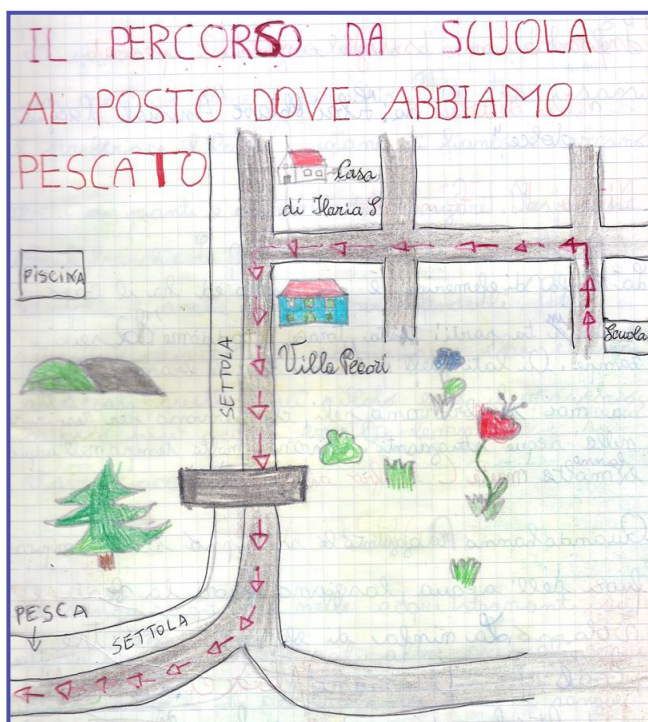 IL PERCORSO DA SCUOLA
AL POSTO DOVE ABBIAMO
PESCATO
Casa
di Ilaria S
PISCINA
Scuola
SETTOLA
Villa Pecori
PESCA
SETTOLA